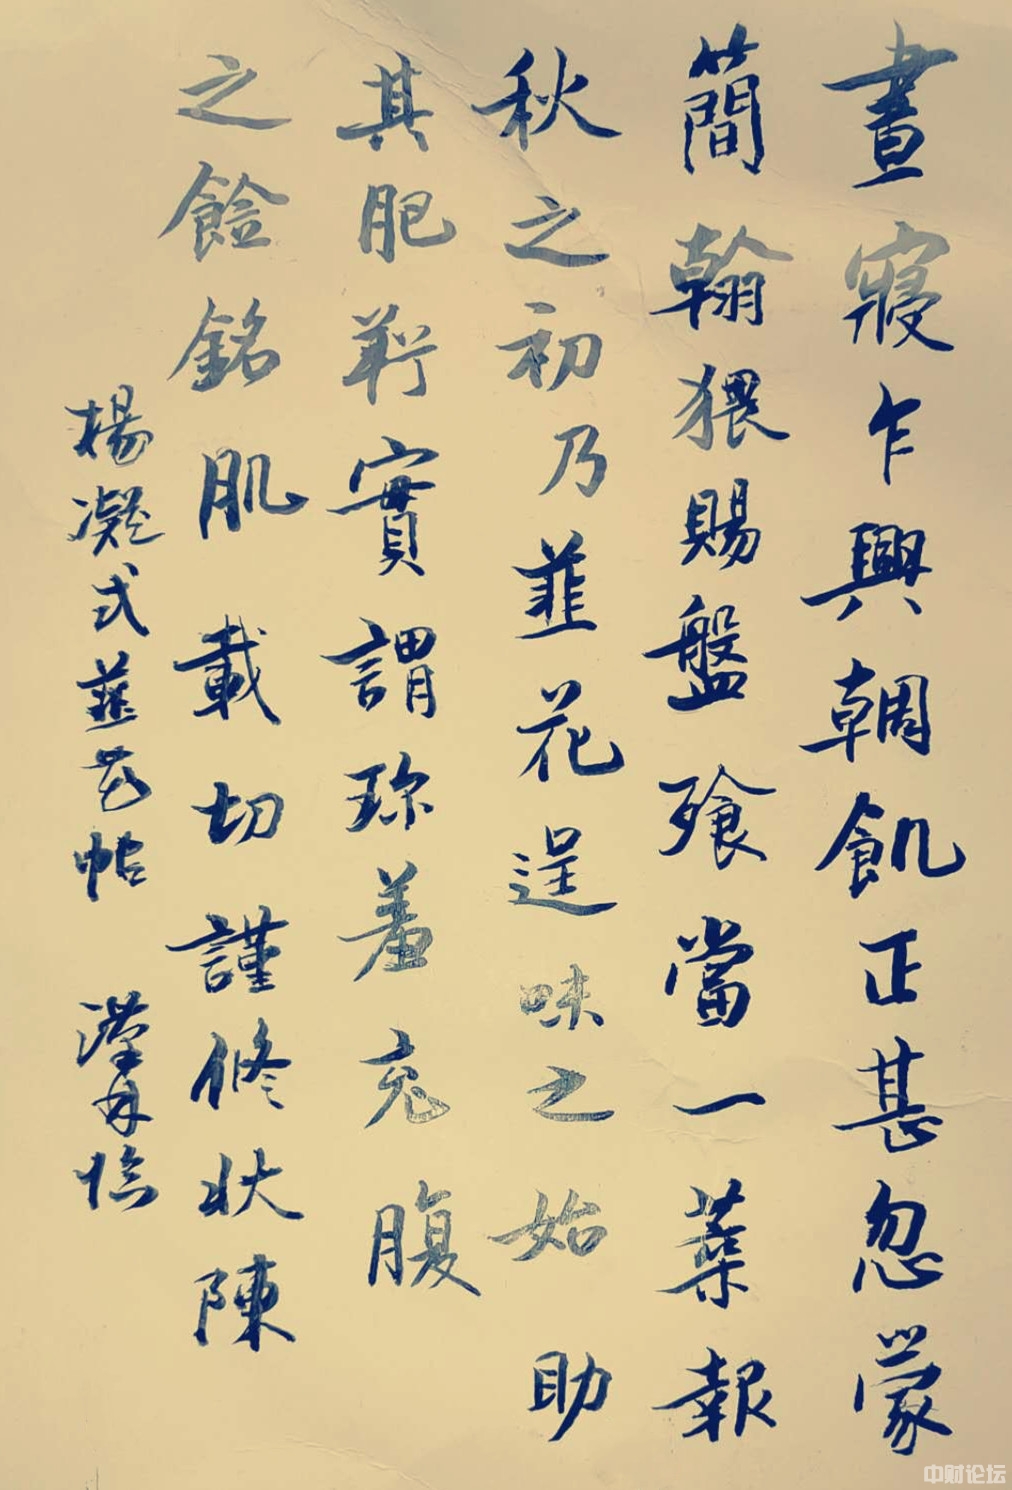 晝寢乍興輖飢正甚忽蒙
簡翰猥賜盤飱當一葉報
秋之初乃韮花逞味之始助
其肥羜實謂珎羞充腹
之餘銘肌載切謹修狀陳
楊凝式韮花帖
中财论坛